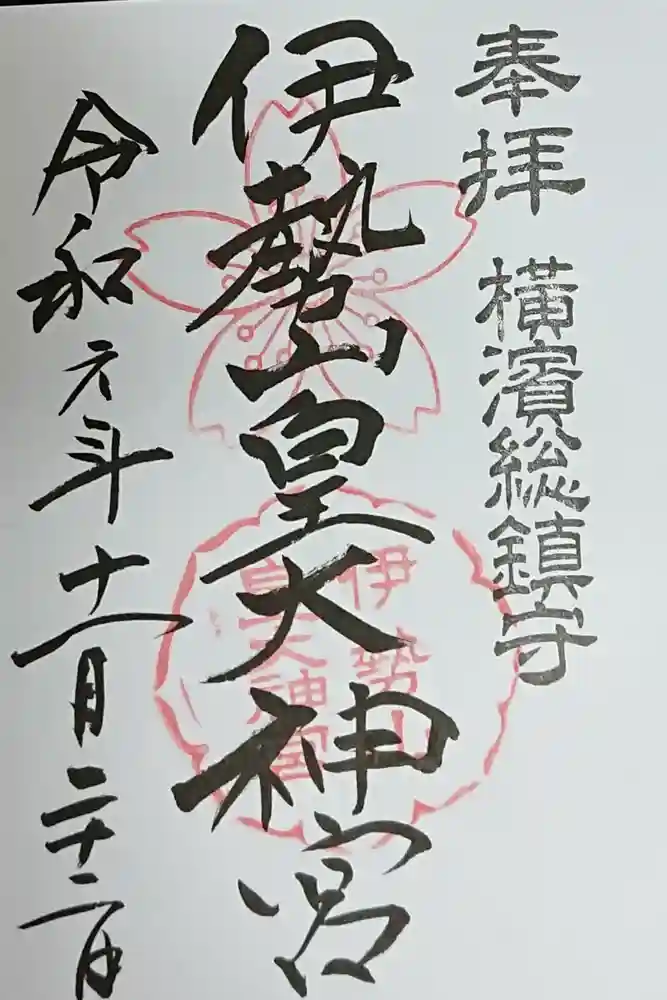 奉拝 横濱総鎮守
伊勢山皇大神宮
伊勢山
皇大神宮
令和元年十一月二十二日